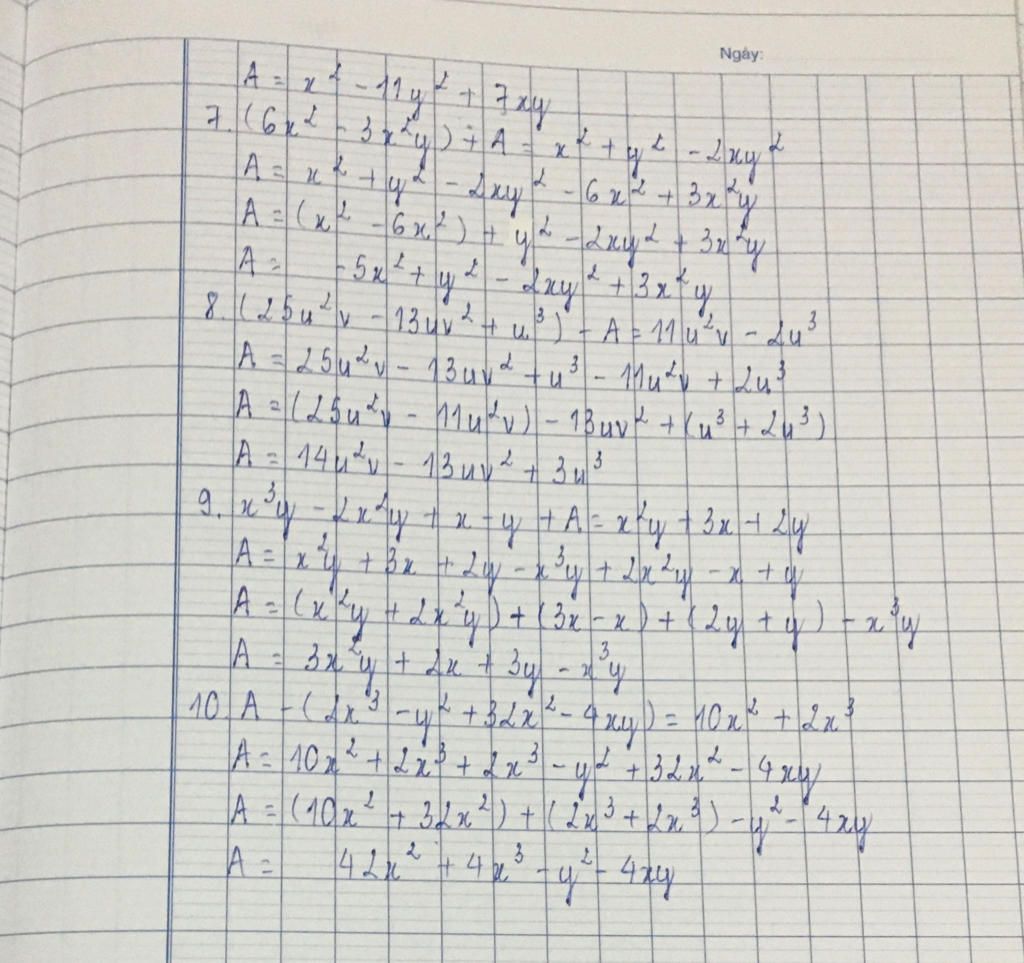 Ngày:
A = x² - 11y² + 7xy
7. (6x² - 3x²y) + A = x² + y² - 2xy²
A = x² + y² - 2xy² - 6x² + 3x²y
A = (x² - 6x²) + y² - 2xy² + 3x²y
A = -5x² + y² - 2xy² + 3x²y
8. (25u²v - 13uv² + u³) - A = 11u²v - 2u³
A = 25u²v - 13uv² + u³ - 11u²v + 2u³
A = (25u²v - 11u²v) - 13uv² + (u³ + 2u³)
A = 14u²v - 13uv² + 3u³
9. x³y - 2x²y + x - y + A = x²y + 3x + 2y
A = x²y + 3x + 2y - x³y + 2x²y - x + y
A = (x²y + 2x²y) + (3x - x) + (2y + y) - x³y
A = 3x²y + 2x + 3y - x³y
10. A - (2x³ - y² + 32x² - 4xy) = 10x² + 2x³
A = 10x² + 2x³ + 2x³ - y² + 32x² - 4xy
A = (10x² + 32x²) + (2x³ + 2x³) - y² - 4xy
A = 42x² + 4x³ - y² - 4xy